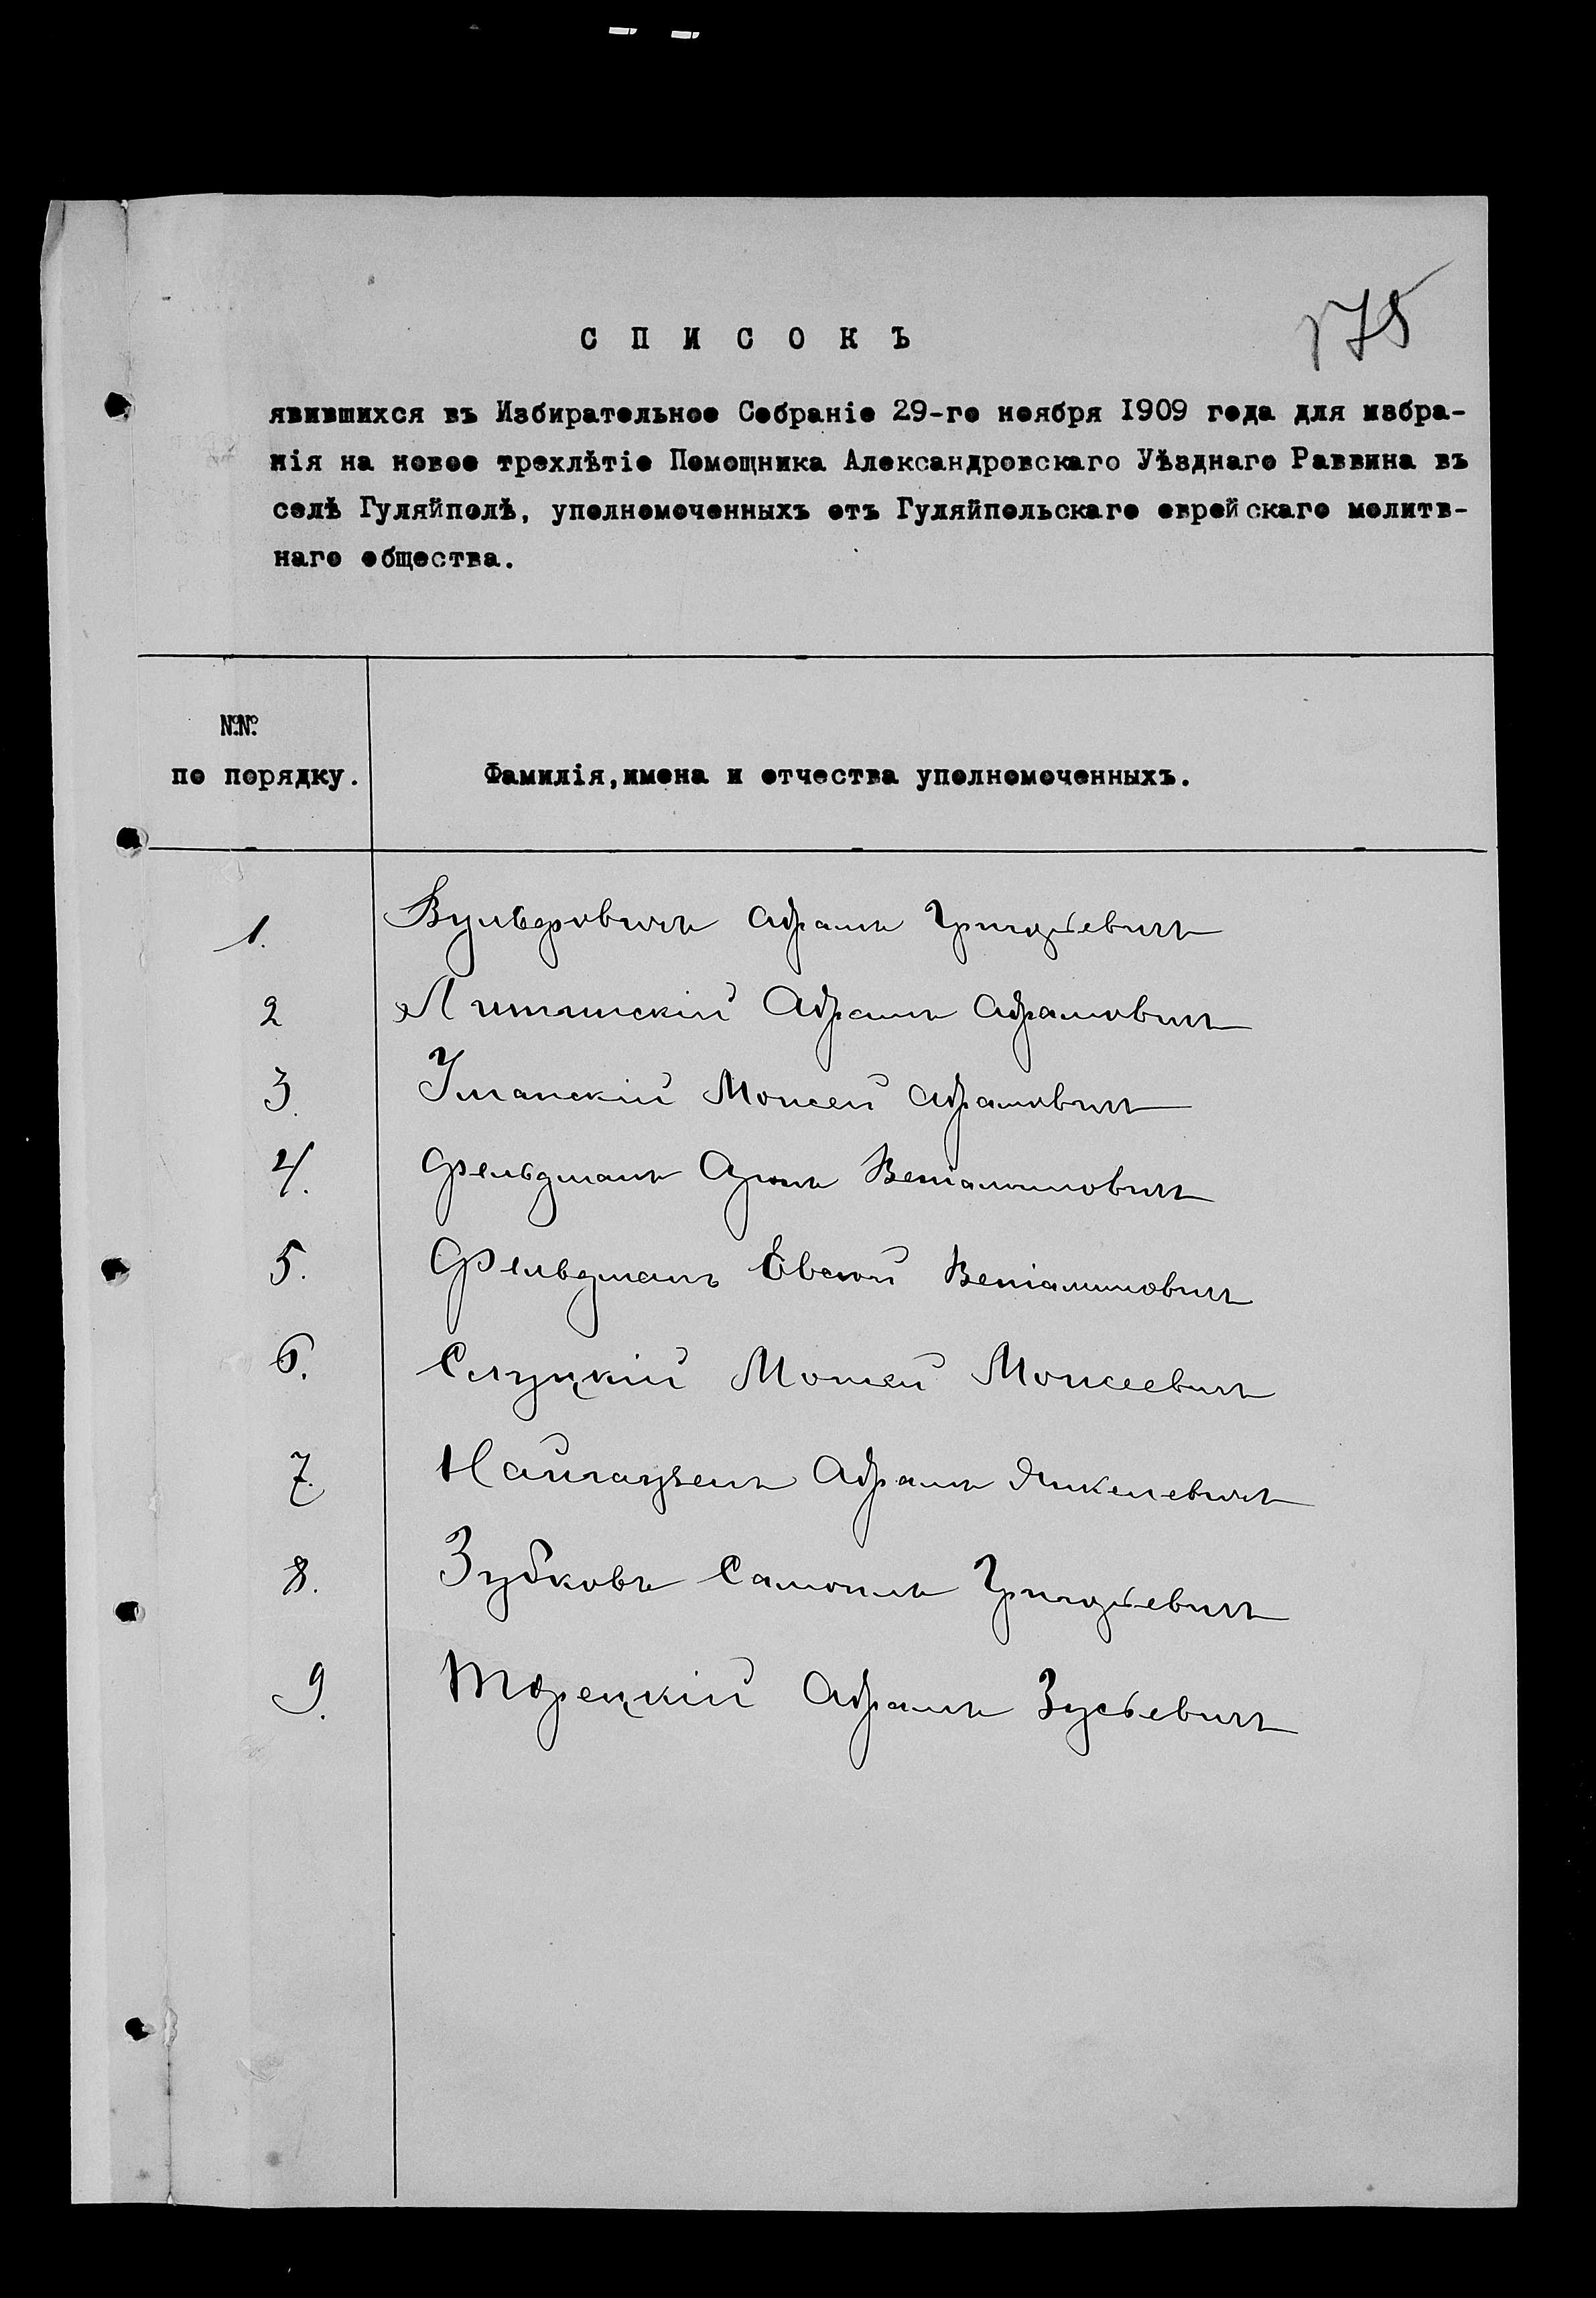 175
СПИСОКЪ
явившихся въ Избирательное Собраніе 29-го ноября 1909 года для избра-
нія на новое трехлѣтіе Помощника Александровскаго Уѣзднаго Раввина въ
селѣ Гуляйполѣ, уполномоченныхъ отъ Гуляйпольскаго еврейскаго молитв-
наго общества.
№№
по порядку.
Фамилія, имена и отчества уполномоченныхъ.
1. Вульфовичъ Абрамъ Григорьевичъ
2 Литинскій Абрамъ Абрамовичъ
3. Уманскій Моисей Абрамовичъ
4. Фельдманъ Веніаминовичъ
5. Фельдманъ Евсей Веніаминовичъ
6. Слуцкій Моисей Моисеевичъ
7. Найгаузенъ Абрамъ Янкелевичъ
8. Зубковъ Самоилъ Григорьевичъ
9. Абрамъ Зусьевичъ